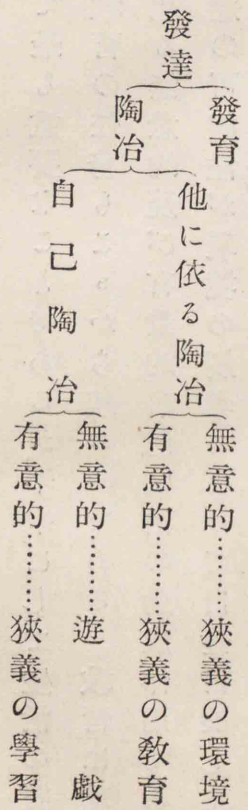 發達
發育
陶冶
他に依る陶冶
無意的………狹義の環境
有意的………狹義の教育
自己陶冶
無意的………遊戲
有意的………狹義の學習